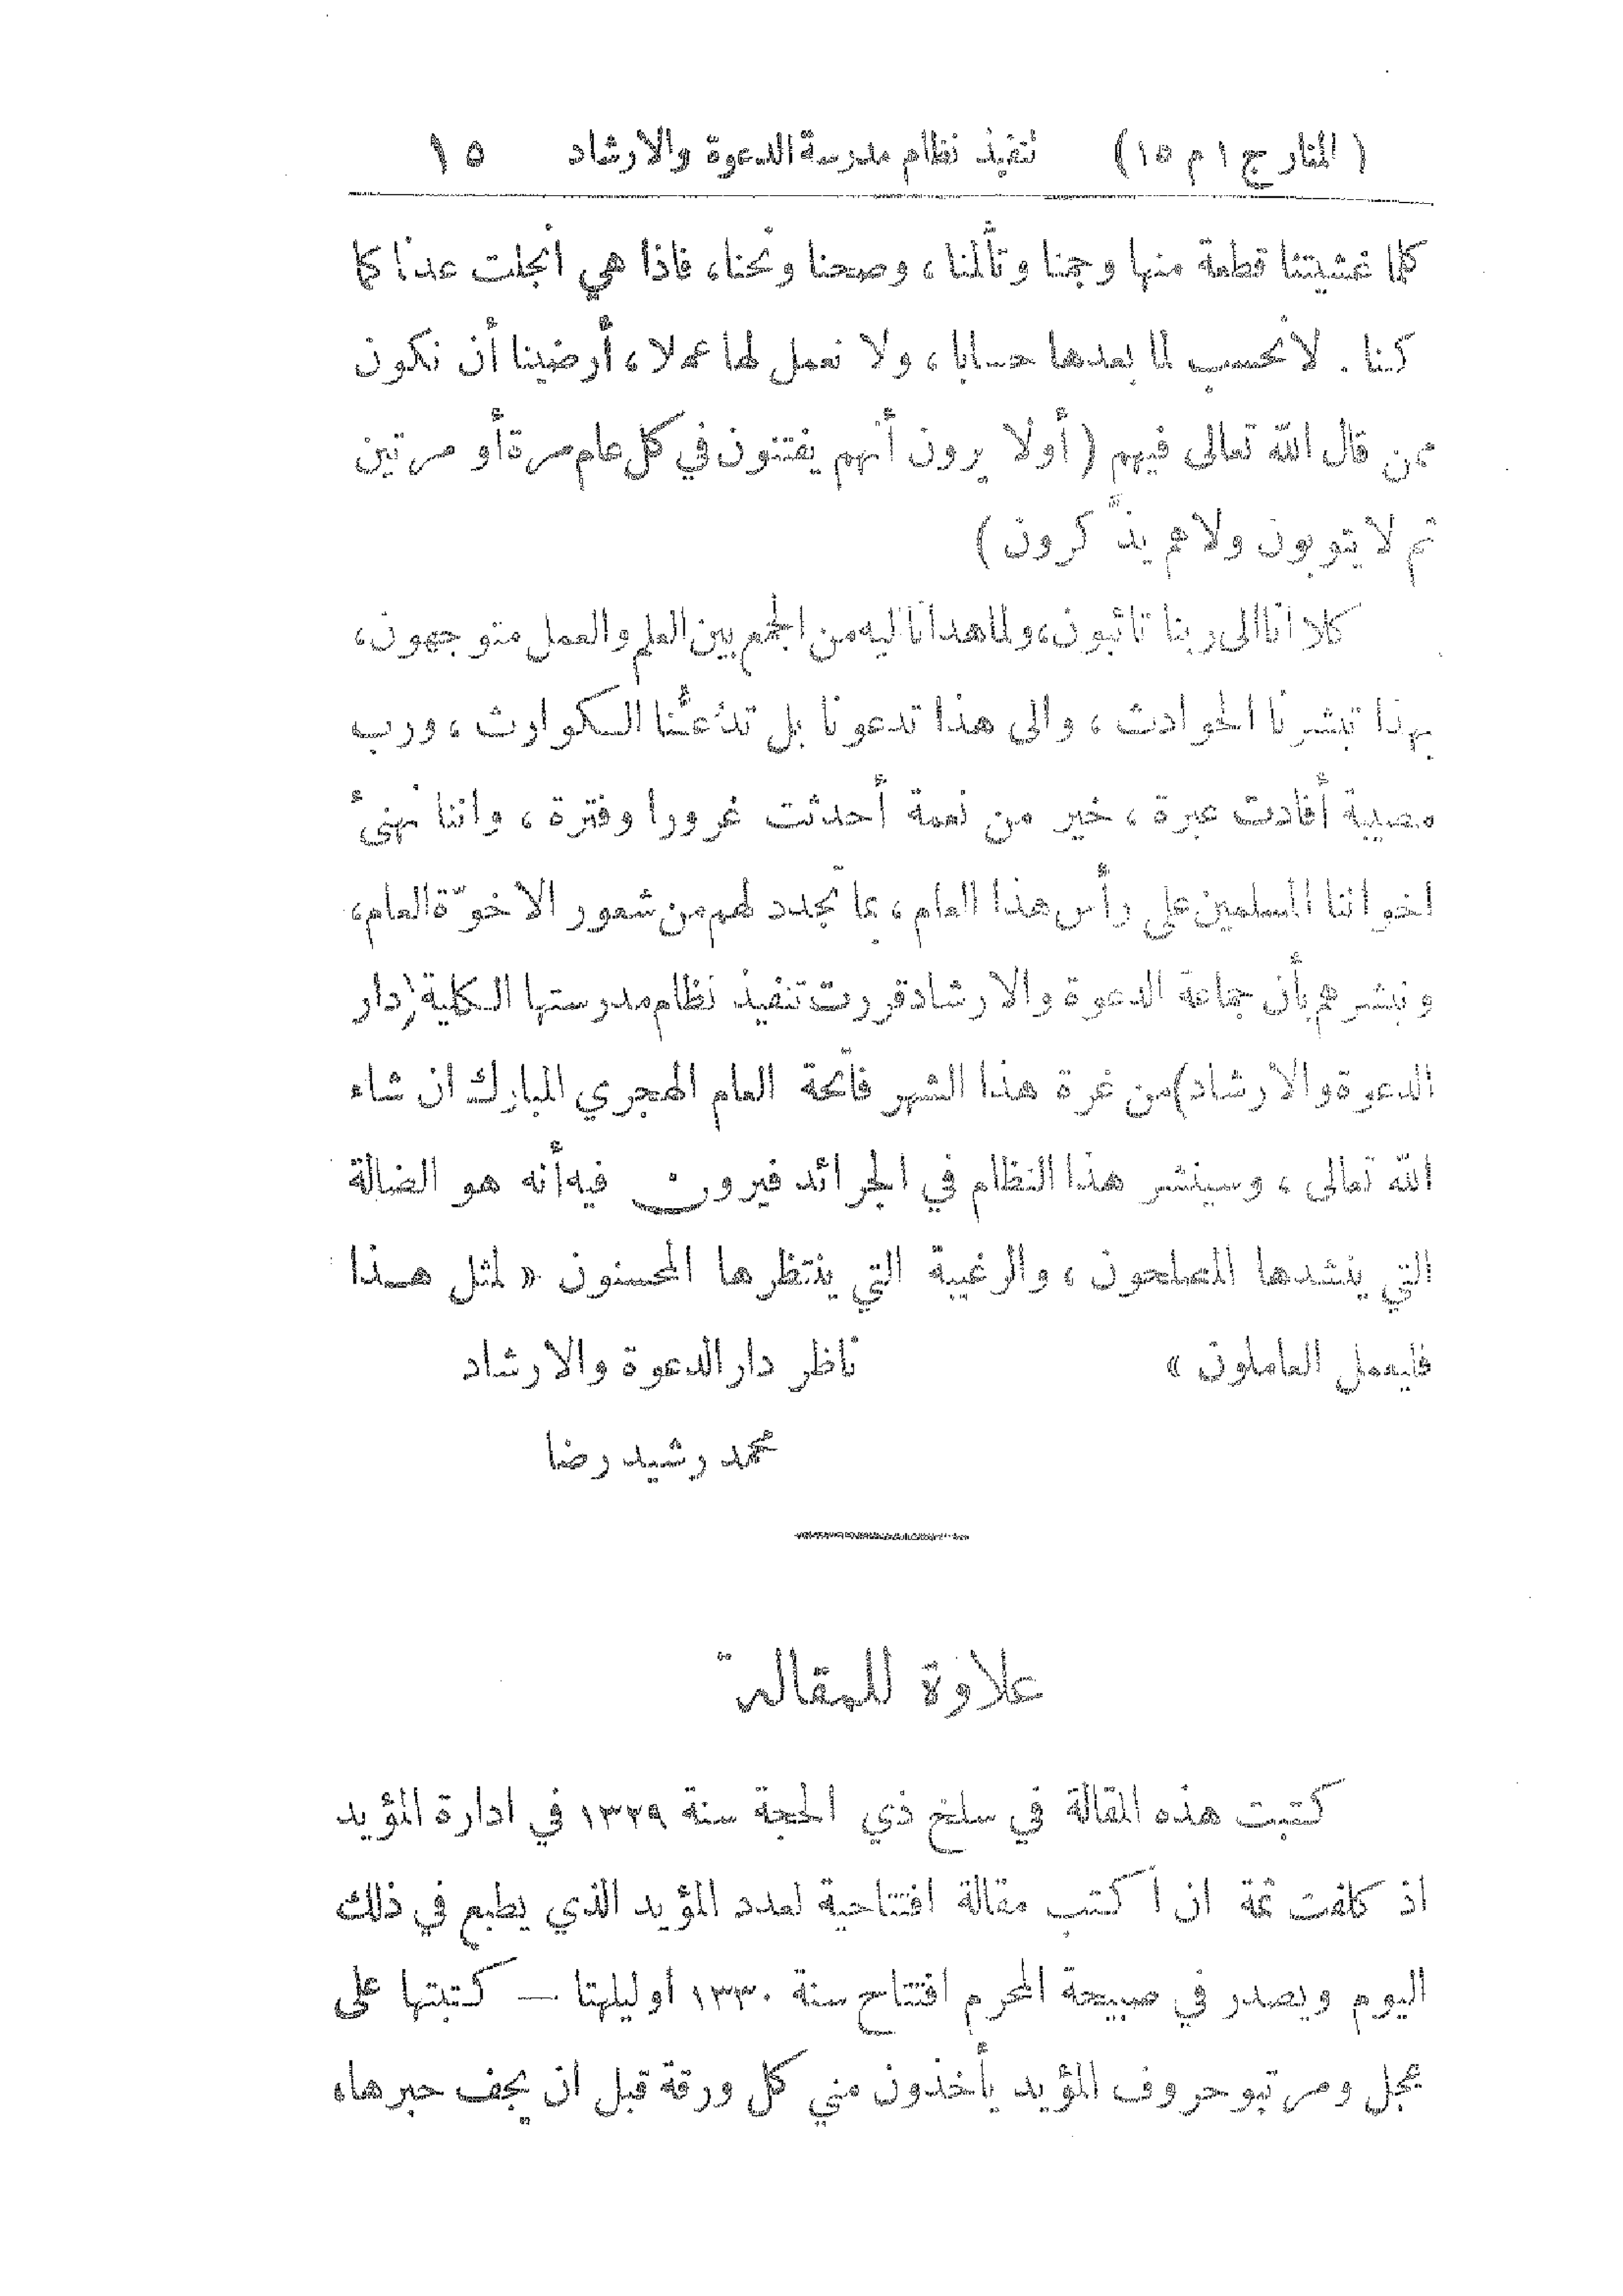 ( المنار ج ١ م ١٥ ) تنفيذ نظام مدرسة الدعوة والارشاد ١٥
كلما غشيتنا قطعة منها وجمنا وتألمنا ، وصحنا ونحنا، فاذا هي انجلت عدنا كما
كنا . لانحسب لما بعدها حسابا ، ولا نعمل لها عملا ، أرضينا أن نكون
ممن قال الله تعالى فيهم ( أولا يرون أنهم يفتنون في كل عام مرة أو مرتين
ثم لا يتوبون ولا هم يذَّكرون )
كلا اناالى ربنا تائبون، ولما هدانا اليه من الجمع بين العلم والعمل متوجهون،
بهذا تبشرنا الحوادث ، والى هذا تدعونا بل تدُعُّنا الكوارث ، ورب
مصيبة أفادت عبرة ، خير من نعمة أحدثت غرورا وفترة ، واننا نهنئ
اخواننا المسلمين على رأس هذا العام ، بما تجدد لهم من شعور الاخوّة العام،
ونبشرهم بأن جماعة الدعوة والارشاد قررت تنفيذ نظام مدرستها الكلية (دار
الدعوة والارشاد) من غرة هذا الشهر فاتحة العام الهجري المبارك ان شاء
الله تعالى ، وسينشر هذا النظام في الجرائد فيرون فيه أنه هو الضالة
التي ينشدها المصلحون ، والرغيبة التي ينتظرها المحسنون « لمثل هذا
فليعمل العاملون » ناظر دار الدعوة والارشاد
محمد رشيد رضا
علاوة للمقالة
كتبت هذه المقالة في سلخ ذي الحجة سنة ١٣٢٩ في ادارة المؤيد
اذ كلفت ثمة ان اكتب مقالة افتتاحية لعدد المؤيد الذي يطبع في ذلك
اليوم ويصدر في صبيحة المحرم افتتاح سنة ١٣٣٠ أوليلهتا — كتبتها على
عجل ومرتبو حروف المؤيد يأخذون مني كل ورقة قبل ان يجف حبرها،